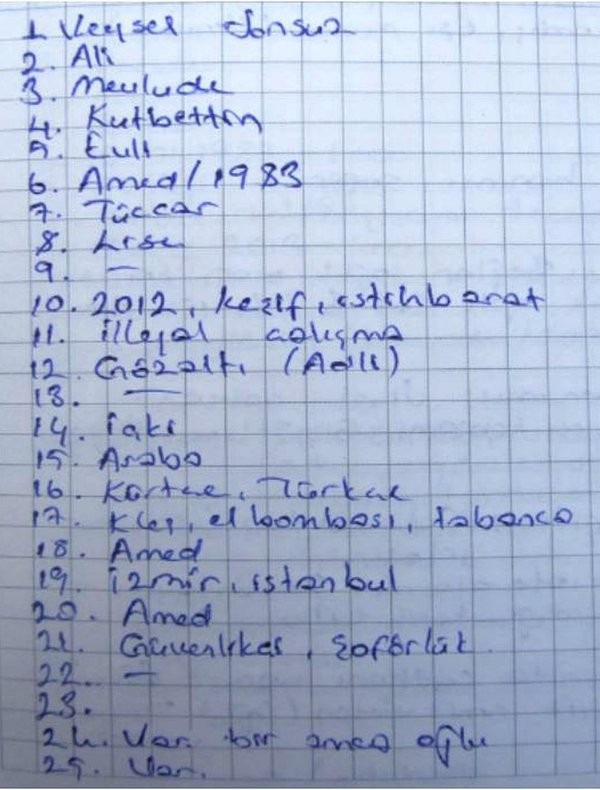 1. Veysel Cansuz
2. Ali
3. Mevlude
4. Kutbettin
5. Evli
6. Amed/1983
7. Tüccar
8. Lise
9. —
10. 2012, keşif, istihbarat
11. illegal çalışma
12. Gözaltı (Adli)
13. —
14. iaki
15. Araba
16. Kürtçe, Türkçe
17. Kleş, el bombası, tabanca
18. Amed
19. izmir, istanbul
20. Amed
21. Güvenlikçi, Şoförlük
22. —
23.
24. Var. bir amca oğlu
25. Var.